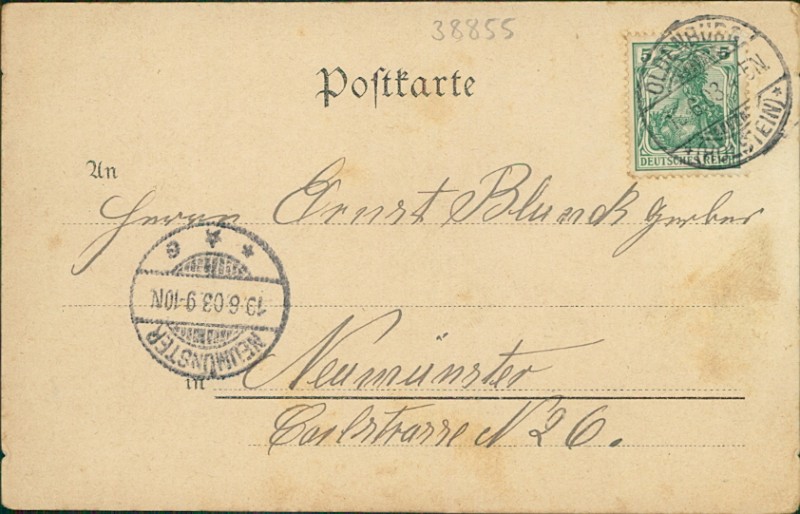 38855
Postkarte
5 5
DEUTSCHES REICH
OLDENBURG
(HOLSTEIN)
An
Herrn Ernst Blunck Gerber
* * * c
19.6.03.9-10N
NEUMÜNSTER
in Neumünster
Carlstrasse N 26.